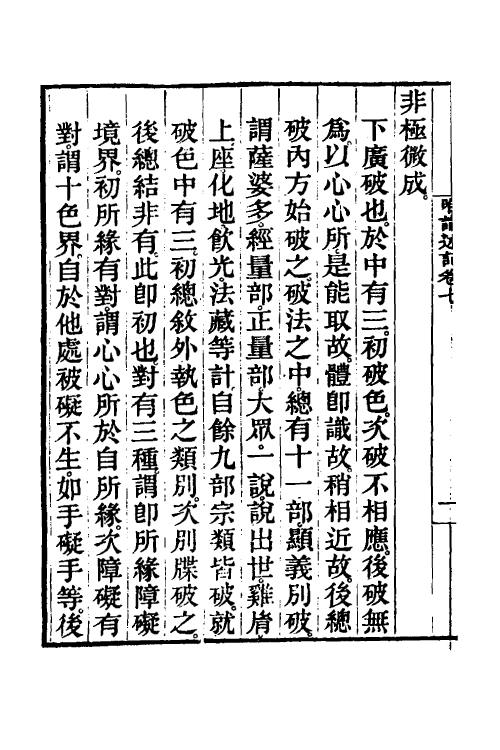 非極微成。
下廣破也。於中有三。初破色。次破不相應。後破無
爲。以心心所是能取故。體卽識故。稍相近故。後總
破內方始破之。破法之中。總有十一部。顯義別破。
謂薩婆多。經量部。正量部。大眾。一說。說出世。雞㣧
上座。化地。飮光。法藏等計。自餘九部宗類皆破。就
破色中有三。初總敘外執色之類別。次別牒破之。
後總結非有。此卽初也。對有三種。謂卽所緣障礙
境界。初所緣有對。謂心心所於自所緣。次障礙有
對。謂十色界。自於他處被礙不生。如手礙手等。後
述記卷七
一